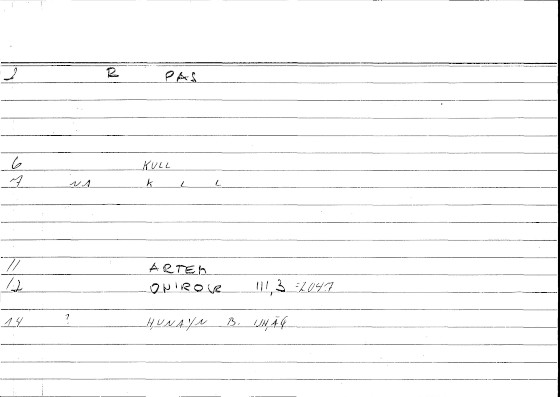 1 R PAS
6 KULL
7 NA K L L
11 ARTEM
12 ONIROCR III,3 =2047
14 ? HUNAYN B. ISHĀQ